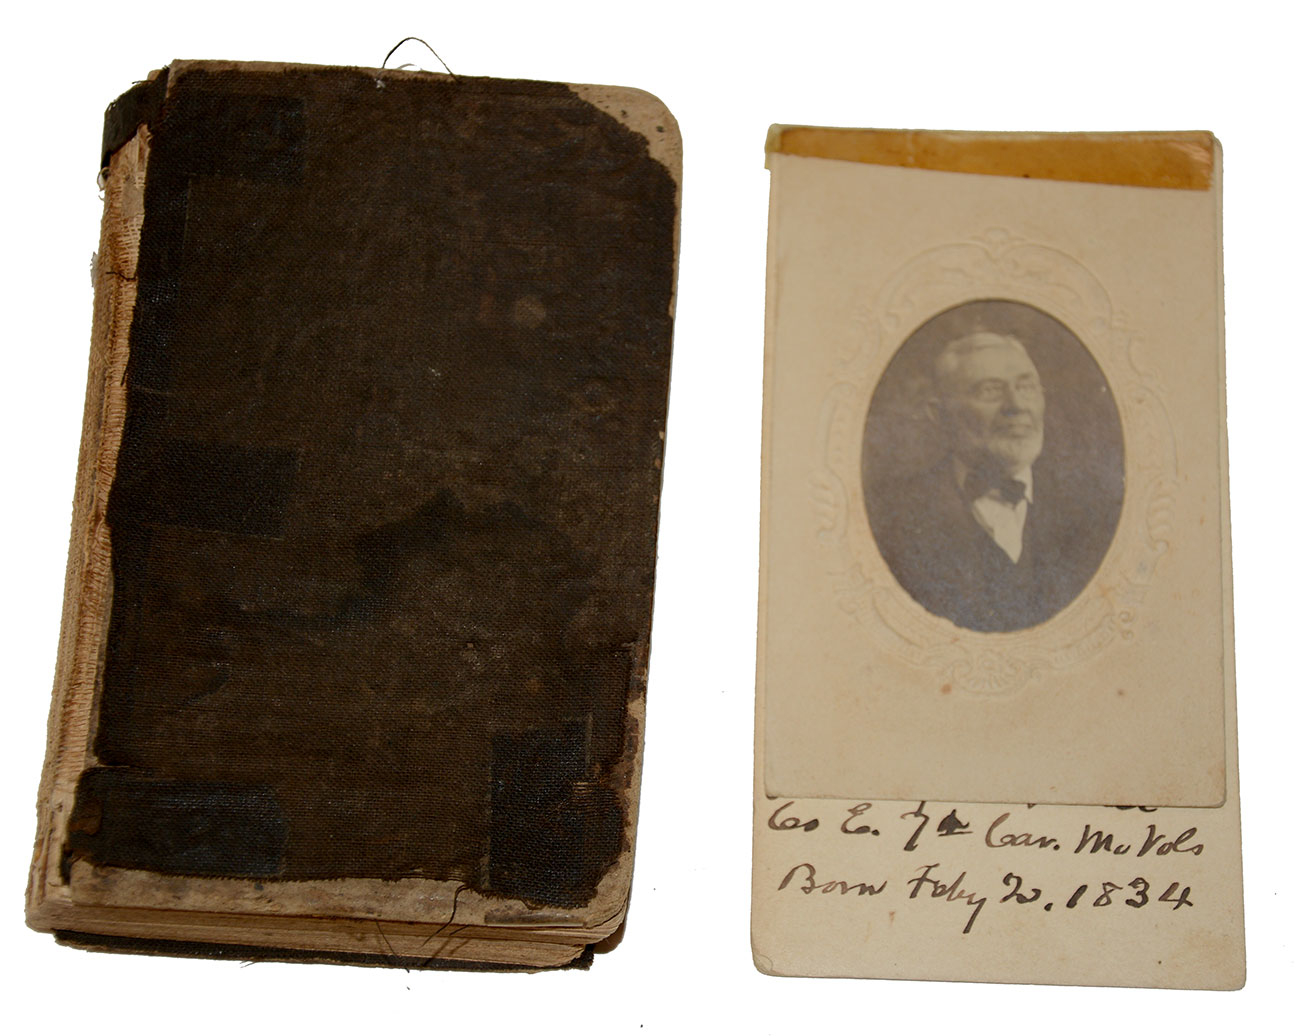 Co E. 7th Cav. Mo Vols
Born Feby 20, 1834